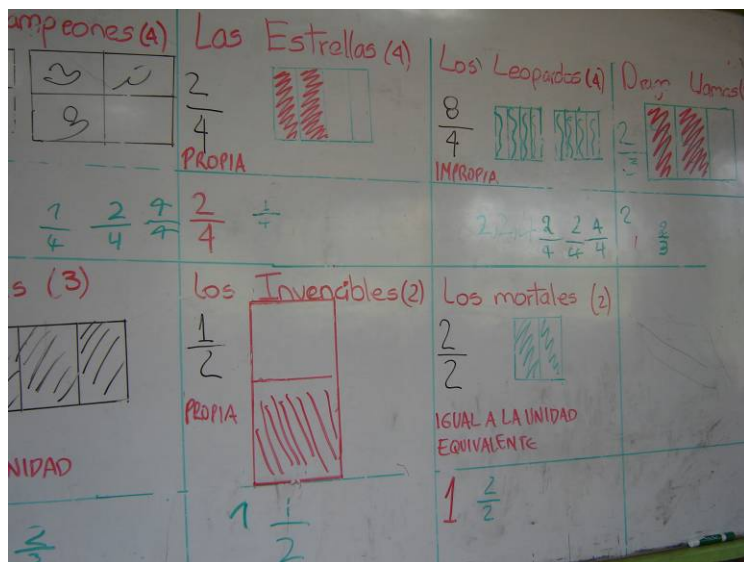 ampeones (4)
1/4 2/4 4/4
Las Estrellas (4)
2/4
PROPIA
2/4 1/4
Los Leopardos (4)
8/4
IMPROPIA
2/4 2/4 4/4
2/3
2 1 2/3
s (3)
NIDAD
2/3
Los Invencibles (2)
1/2
PROPIA
1 1/2
Los mortales (2)
2/2
IGUAL A LA UNIDAD
EQUIVALENTE
1 2/2